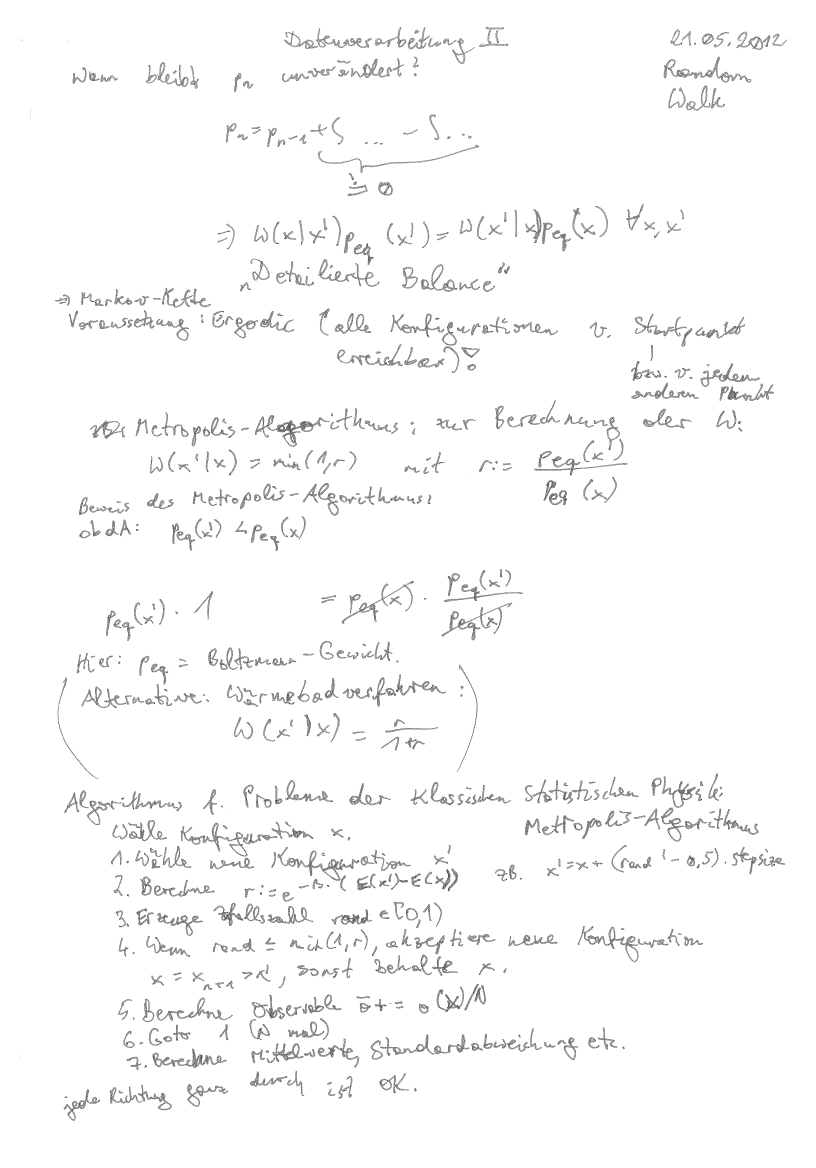 Datenverarbeitung II 21.05.2012
Wann bleibt pₙ unverändert? Random
Walk
pₙ = pₙ₋₁ + ∫ ... - ∫ ...
≐ 0
⇒ W(x|x') p_eq (x') = W(x'|x) p_eq (x) ∀x,x'
„Detailierte Balance“
⇒ Markov-Kette
Voraussetzung: Ergodic (alle Konfigurationen v. Startpunkt
erreichbar)!
bzw. v. jeden
anderen Punkt
Metropolis-Algorithmus: zur Berechnung der W:
W(x'|x) = min(1,r) mit r := p_eq(x') / p_eq (x)
Beweis des Metropolis-Algorithmus:
obdA: p_eq(x') < p_eq(x)
p_eq(x') · 1 = p_eq(x) · p_eq(x') / p_eq(x)
Hier: p_eq = Boltzmann-Gewicht.
(Alternative: Wärmebadverfahren:
W(x'|x) = r / 1+r )
Algorithmus f. Probleme der Klassischen Statistischen Physik:
Metropolis-Algorithmus
Wähle Konfiguration x.
1. Wähle neue Konfiguration x' zB. x' = x + (rand' - 0,5) · stepsize
2. Berechne r := e^-β·(E(x')-E(x))
3. Erzeuge Zufallszahl rand ∈ [0,1)
4. Wenn rand ≤ min(1,r), akzeptiere neue Konfiguration
x = xₙ₊₁ = x', sonst behalte x.
5. Berechne Observable ō += o(x)/N
6. Goto 1 (N mal)
7. Berechne Mittelwerte, Standardabweichung etc.
jede Richtung ganz durch ist OK.